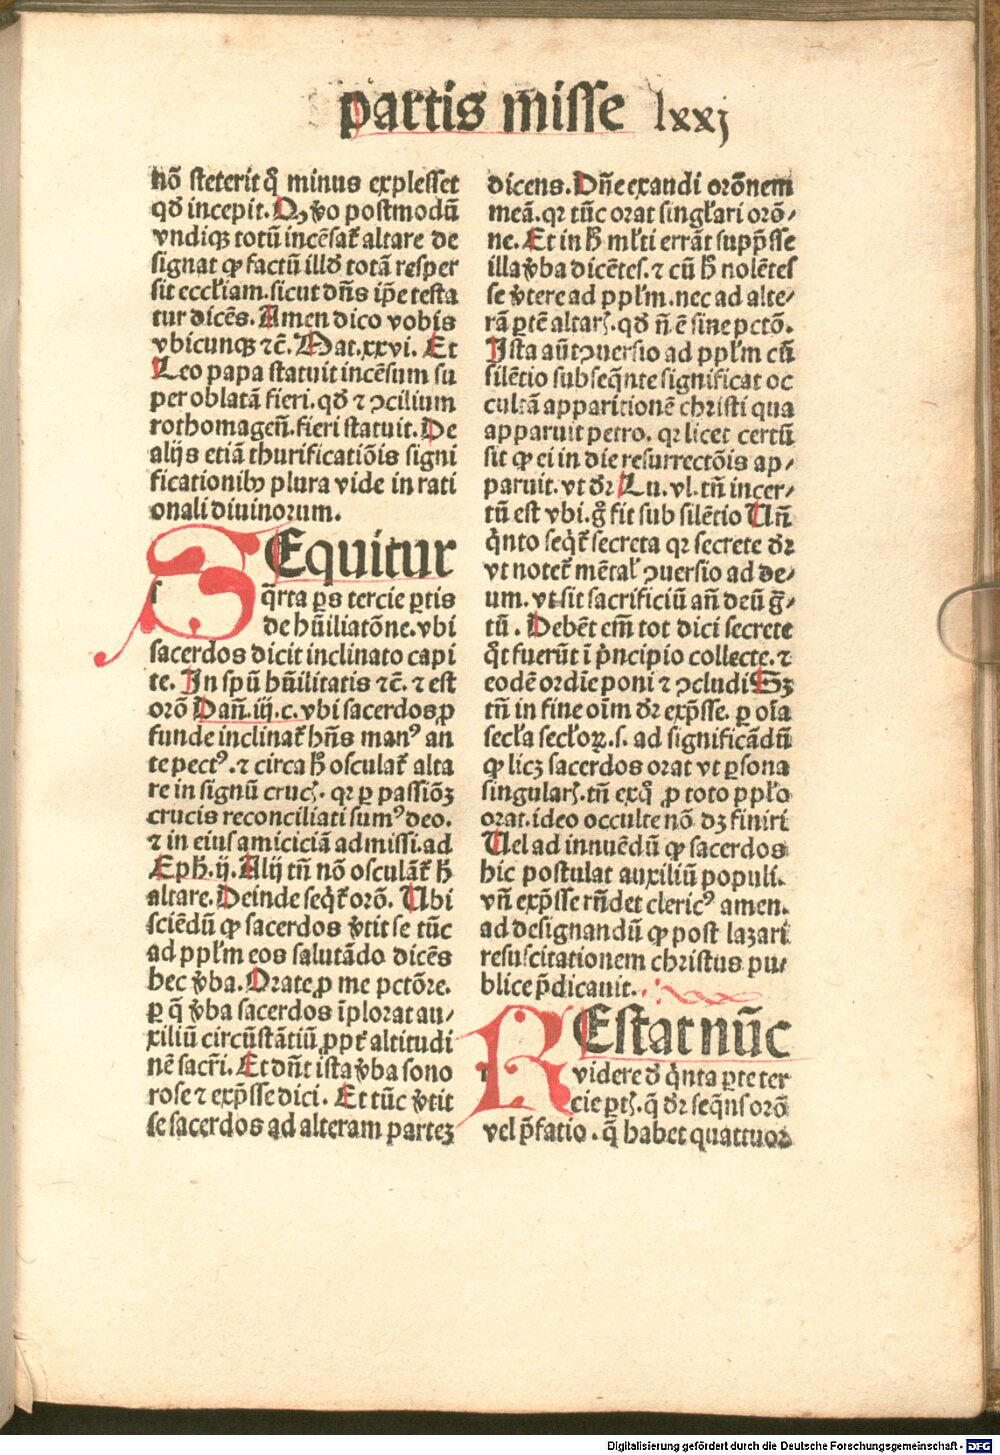 partis misse lxxj
nō steterit q̄ minus explesset
qd̄ incepit. Qꝫ ṽo postmodū
vndiqꝫ totū incēsat᷑ altare de
signat ꝙ factū illd̄ totā resper
sit eccl̄iam. sicut dn̄s ip̄e testa
tur dicēs. Amen dico vobis
vbicunqꝫ ⁊c̄. Mat. xxvi. Et
Leo papa statuit incēsum su
per oblatā fieri. qd̄ ⁊ ꝯcilium
rothomageñ. fieri statuit. De
alijs etiā thurificatiōis signi
ficationibꝰ plura vide in rati
onali diuinorum.
SEquitur
q̄rta ꝑs tercie ꝑtis
de hūiliatōne. vbi
sacerdos dicit inclinato capi
te. In spū hūilitatis ⁊c̄. ⁊ est
orō Dañ. iij. c. vbi sacerdos ꝓ
funde inclinat᷑ hn̄s manꝰ an
te pectꝰ. ⁊ circa h̄ osculat᷑ alta
re in signū crucꝭ. qꝛ ꝑ passiōꝫ
crucis reconciliati sumꝰ deo.
⁊ in eiusamiciciā admissi. ad
Eph̄. ij. Alij tn̄ nō osculāt᷑ h̄
altare. Deinde seq̄t᷑ orō. Ubi
sciēdū ꝙ sacerdos v̄tit se tūc
ad ppl̄m eos salutādo dicēs
hec v̄ba. Orate ꝓ me pctōre.
ꝑ q̄ v̄ba sacerdos īplorat au⸗
xiliū circūstātiū ꝓpt᷑ altitudi
nē sacr̄i. Et dn̄t ista v̄ba sono
rose ⁊ exp̄sse dici. Et tūc v̄tit
se sacerdos ad alteram parteꝫ
dicens. Dn̄e exaudi orōnem
meā. qꝛ tūc orat singl̄ari orō⸗
ne. Et in h̄ ml̄ti errāt supp̄sse
illa v̄ba dicētes. ⁊ cū h̄ nolētes
se v̄tere ad ppl̄m. nec ad alte⸗
rā ꝑtē altarꝭ. qd̄ n̄ ē sine pctō.
Ista aūt ꝯuersio ad ppl̄m cū
silētio subseq̄nte significat oc
cultā apparitionē christi qua
apparuit petro. qꝛ licet certū
sit ꝙ ei in die resurrectōis ap⸗
paruit. vt dꝛ̄ Lu. vl. tn̄ incer⸗
tū est vbi. g̊ fit sub silētio Un̄
q̄nto seq̄t᷑ secreta qꝛ secrete dꝛ̄
vt notet᷑ mētal̄ ꝯuersio ad de⸗
um. vt sit sacrificiū añ deū g̃⸗
tū. Debēt em̄ tot dici secrete
q̄t fuerūt ī pͥncipio collecte. ⁊
eodē ordīe poni ⁊ ꝯcludi Sꝫ
tn̄ in fine oīm dꝛ̄ exp̄sse. ꝑ oīa
secl̄a secl̄oꝝ. s. ad significādū
ꝙ licꝫ sacerdos orat vt ꝑsona
singularꝭ. tn̄ exq̊ ꝓ toto ppl̄o
orat. ideo occulte nō dꝫ finiri
Uel ad innuēdū ꝙ sacerdos
hic postulat auxiliū populi.
vn̄ exp̄sse rn̄det clericꝰ amen.
ad designandū ꝙ post lazari
resuscitationem christus pu⸗
blice p̄dicauit.
REstat nūc
videre d̄ q̄nta ꝑte ter
cie ꝑtꝭ. q̄ dꝛ̄ seq̄ns orō
vel p̄fatio. q̄ habet quattuor
Digitalisierung gefördert durch die Deutsche Forschungsgemeinschaft - DFG